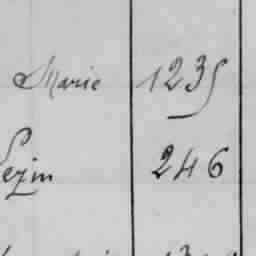 Marie 1235
Pezin 246